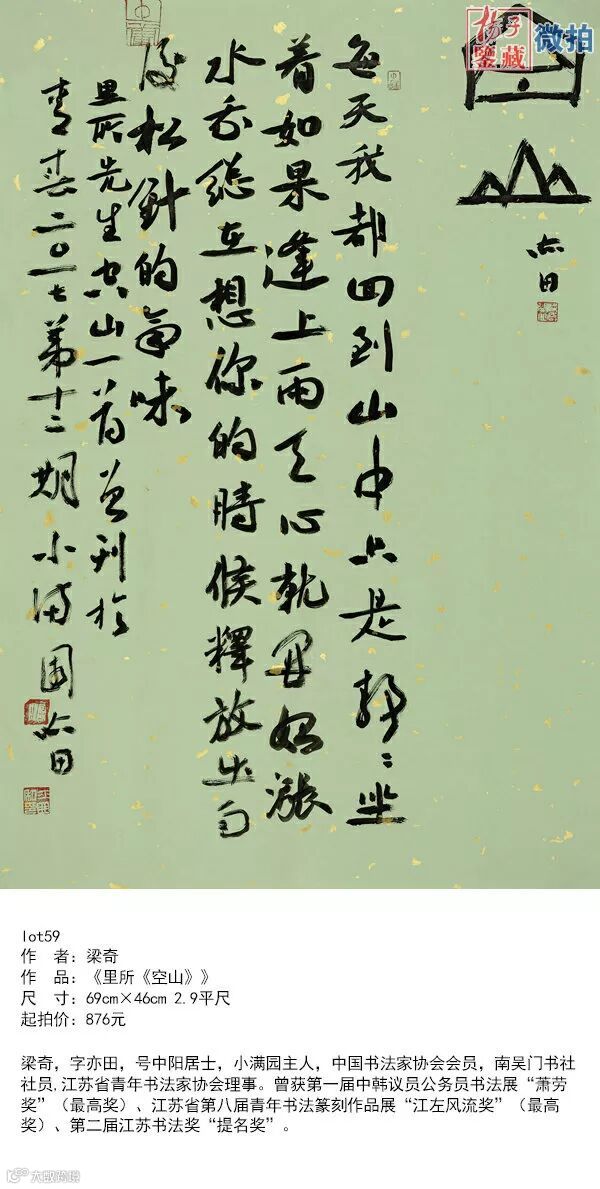 扬子鉴藏 微拍
空山
亦田
每天我都回到山中只是靜〻坐
着如果逢上雨天心就開始漲
水我總在想你的時候釋放出雨
後松針的氣味
里所先生空山一首曾刊於
青春二〇一七第十二期小滿園亦田
lot59
作 者：梁奇
作 品：《里所《空山》》
尺 寸：69cm×46cm 2.9平尺
起拍价：876元
梁奇，字亦田，号中阳居士，小满园主人，中国书法家协会会员，南吴门书社
社员.江苏省青年书法家协会理事。曾获第一届中韩议员公务员书法展“萧劳
奖”（最高奖）、江苏省第八届青年书法篆刻作品展“江左风流奖”（最高
奖）、第二届江苏书法奖“提名奖”。
大数跨境